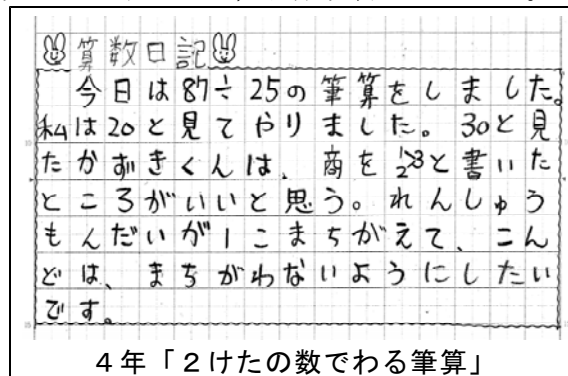 算数日記
今日は87÷25の筆算をしました。
私は20と見てやりました。30と見
たかずきくんは、商を2→3と書いた
ところがいいと思う。れんしゅう
もんだいが1こまちがえて、こん
どは、まちがわないようにしたい
です。
4年「2けたの数でわる筆算」